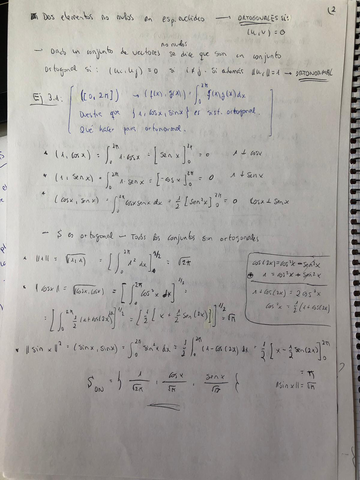 Dos elementos no nulos en esp. euclídeo → ORTOGONALES si: (u,v)=0
(2
no nulos
- Dado un conjunto de vectores se dice que son un conjunto
ortogonal si: (ui, uj) = 0 → i≠j. Si además ||ui||=1 → ORTONORMAL
Ej 3.1. ([0,2π]) (f(x), g(x)) = ∫₀^2π f(x)g(x)dx
que {1, cosx, sinx} es sist. ortogonal
Que hacer para ortonormal.
* (1, cosx) = ∫₀^2π 1·cosx = [sen x]₀^2π = 0
* (1, senx) = ∫₀^2π 1·senx = [-cosx]₀^2π = 0 1 ⊥ senx
* (cosx, senx) = ∫₀^2π cosx senx dx = 1/2 [sen²x]₀^2π = 0 cosx ⊥ senx
- S es ortogonal → Todos los conjuntos son ortogonales
* ||1|| = √(1,1) = [∫₀^2π 1² dx]^1/2 = √2π
cos(2x) = cos²x - sen²x
1 = cos²x + sen²x
1+cos(2x) = 2cos²x
cos²x = 1/2 (1+cos(2x))
* ||cosx|| = √(cosx, cosx) = [∫₀^2π cos²x dx]^1/2
= [∫₀^2π 1/2 (1+cos(2x))]^1/2 = [1/2 [x + 1/2 sen(2x)]]^1/2 = √π
* ||sin x||² = (sinx, sinx) = ∫₀^2π sin²x dx = 1/2 ∫₀^2π (1-cos(2x)) dx = 1/2 [x - 1/2 sen(2x)]₀^2π
= π
||sinx|| = √π
S_ON = {1/√2π, cosx/√π, senx/√π}